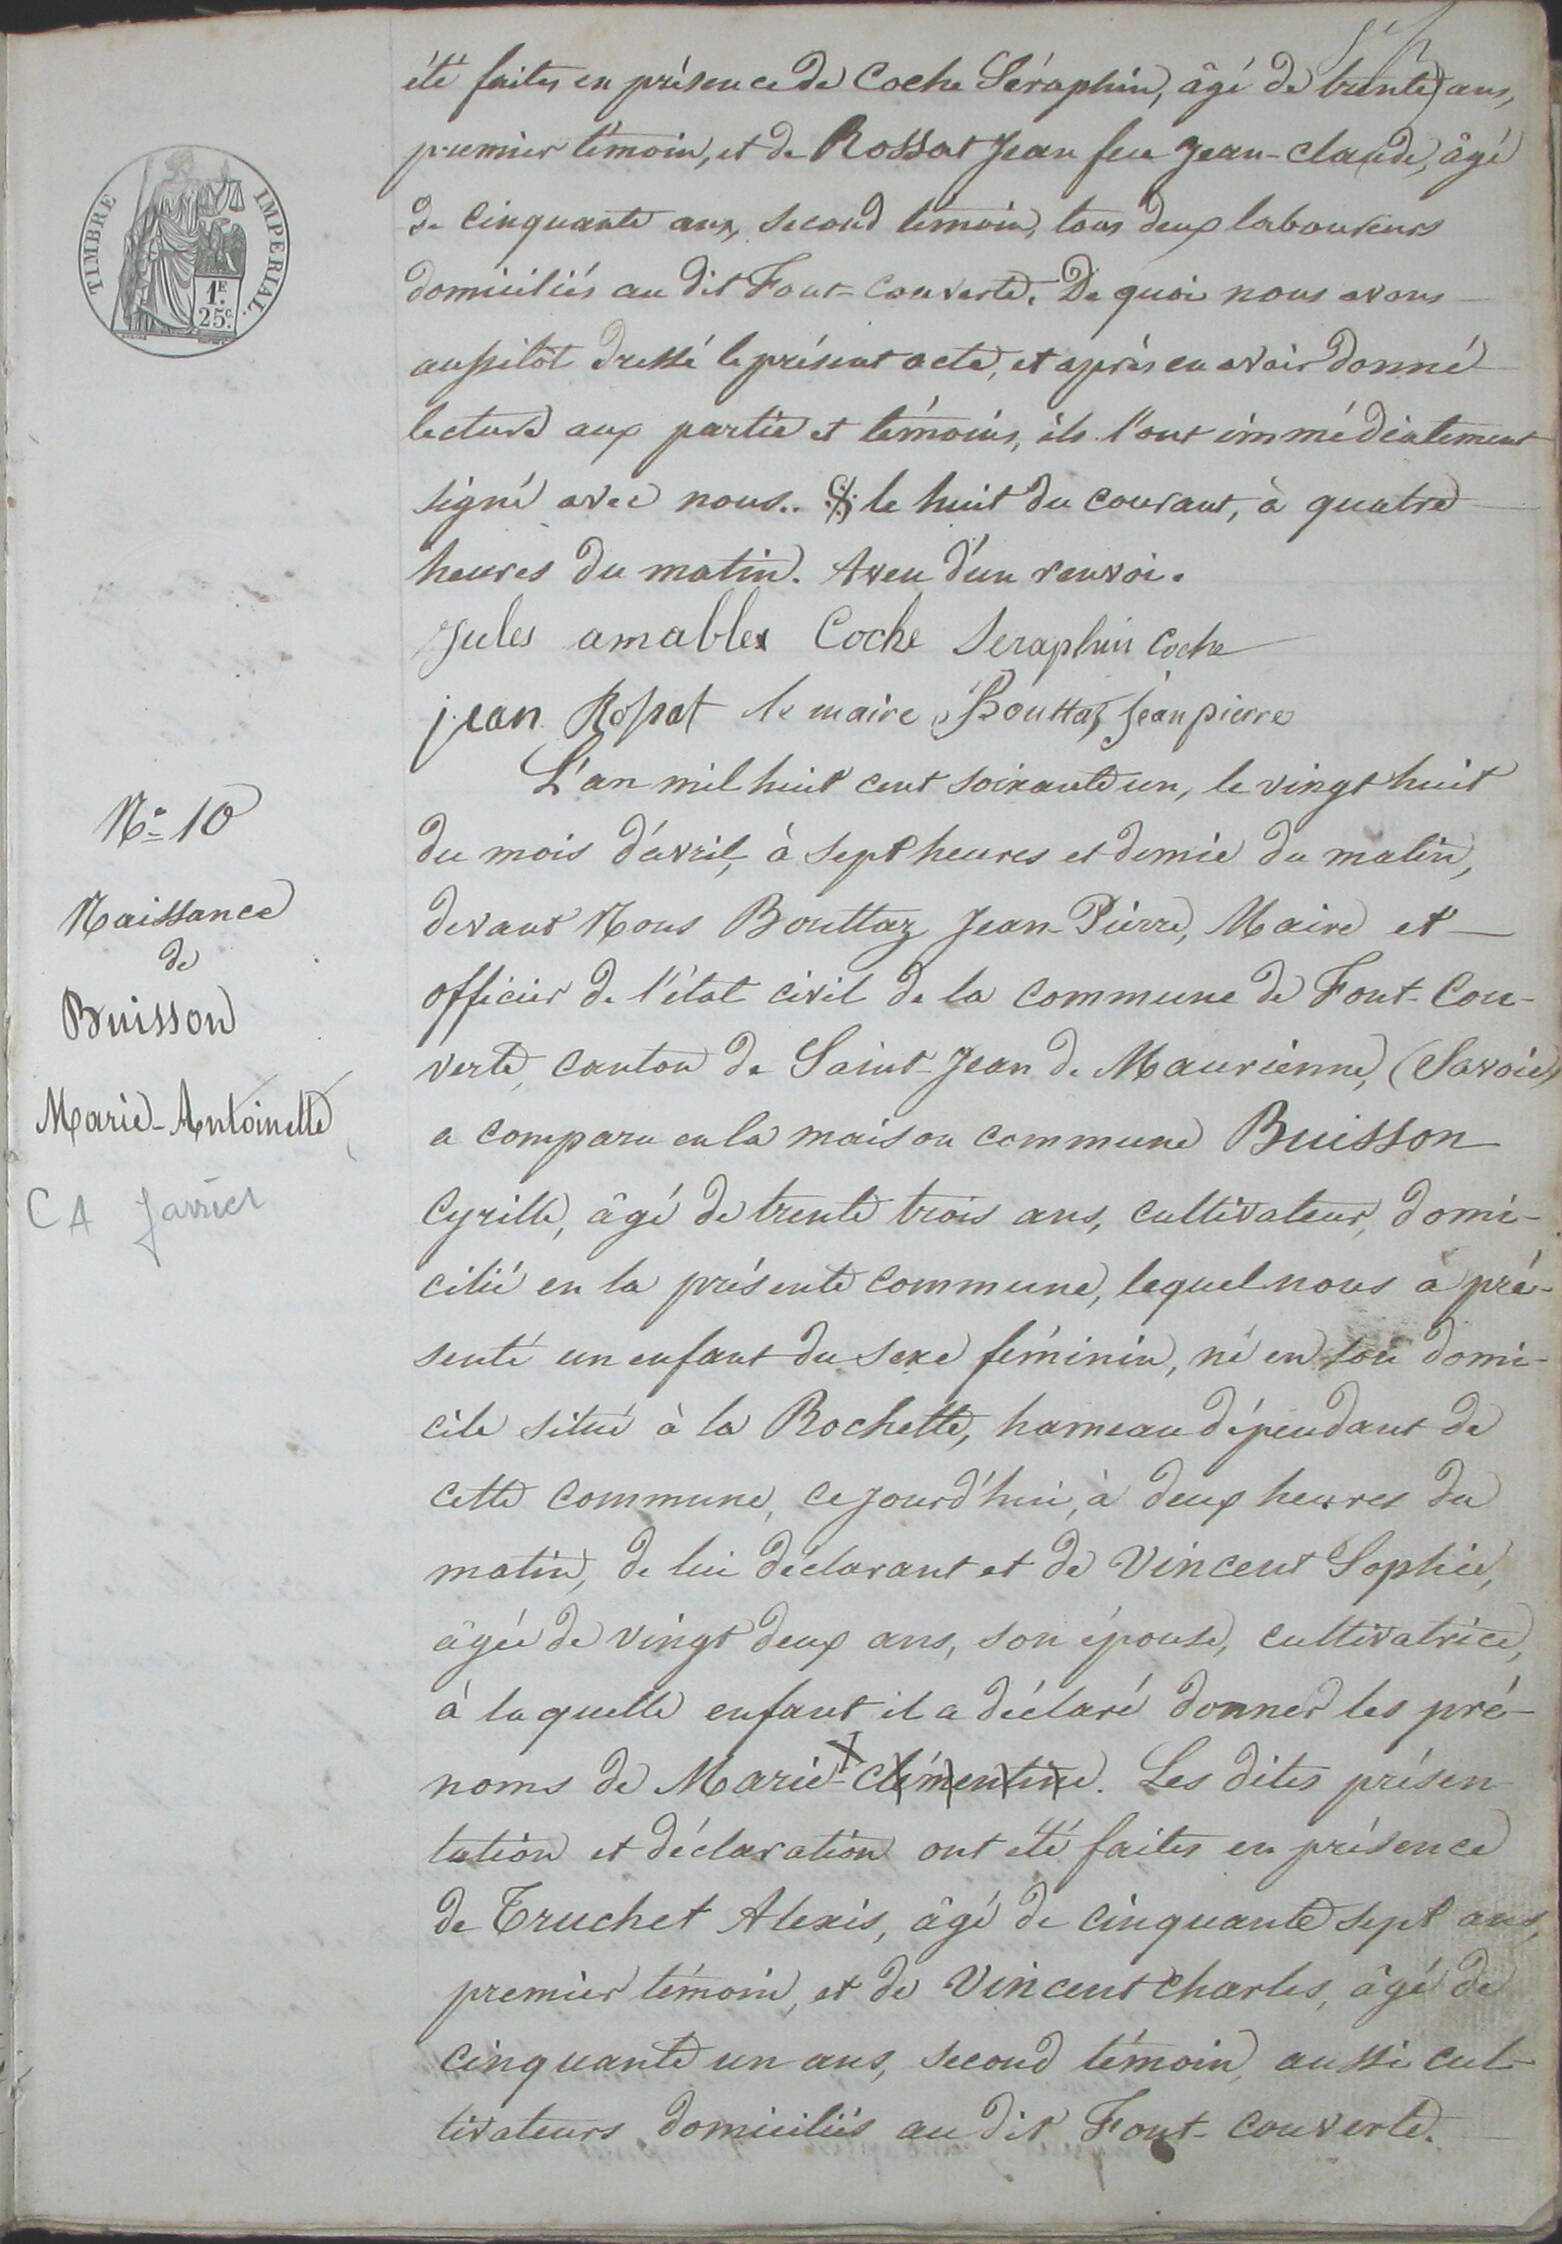 été faites en présence de Coche Séraphin, âgé de trente ans,
premier témoin, et de Rossat Jean feu Jean-claude, âgé
de cinquante ans, second témoin, tous deux laboureurs
domiciliés au dit Font-couverte. De quoi nous avons
aussitôt dressé le présent acte, et après en avoir donné
lecture aux partie et témoins, ils l'ont immédiatement
signé avec nous.. le huit du courant, à quatre
heures du matin. Aveu d'un renvoi.
Jules amable Coche Seraphin Coche
jean Rossat le maire Bouttaz Jean pierre
TIMBRE IMPERIAL.
1F
25c.
Nº 10
Naissance
de
Buisson
Marie-Antoinette
CA Jarrier
L'an mil huit cent soixante un, le vingt huit
du mois d'avril, à sept heures et demie du matin,
devant Nous Bouttaz Jean-Pierre, Maire et
officier de l'état civil de la commune de Font-Cou-
verte, canton de Saint-Jean de Maurienne, (Savoie)
a comparu en la maison commune Buisson
Cyrille, âgé de trente trois ans, cultivateur, domi-
cilié en la présente commune, lequel nous a pré-
senté un enfant du sexe féminin, né en son domi-
cile situé à la Rochette, hameau dépendant de
cette commune, cejourd'hui, à deux heures du
matin, de lui déclarant et de Vincent Sophie,
âgée de vingt deux ans, son épouse, cultivatrice,
à laquelle enfant il a déclaré donner les pré-
noms de Marie-Clémentine. Les dites présen-
tation et déclaration ont été faites en présence
de Truchet Alexis, âgé de cinquante sept ans,
premier témoin, et de Vincent Charles, âgé de
cinquante un ans, second témoin, aussi cul-
tivateurs domiciliés au dit Font-couverte.